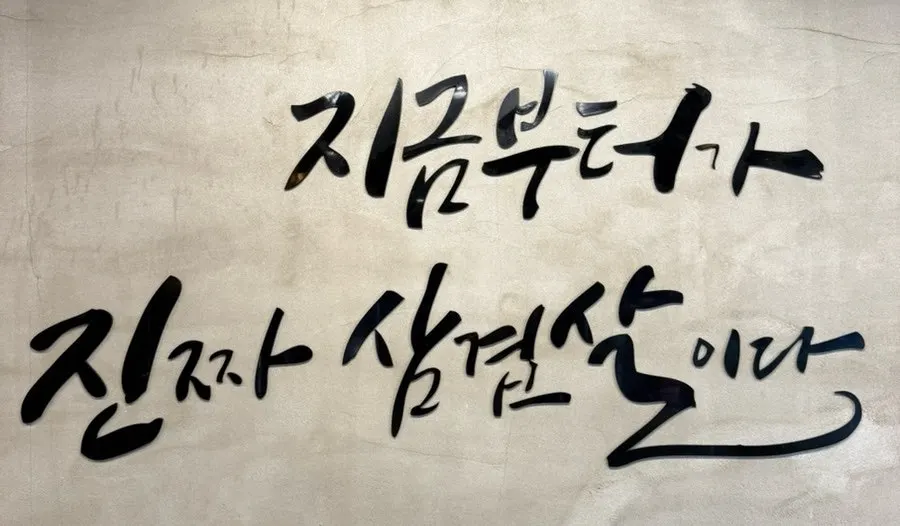 지금부터가
진짜 삼겹살이다